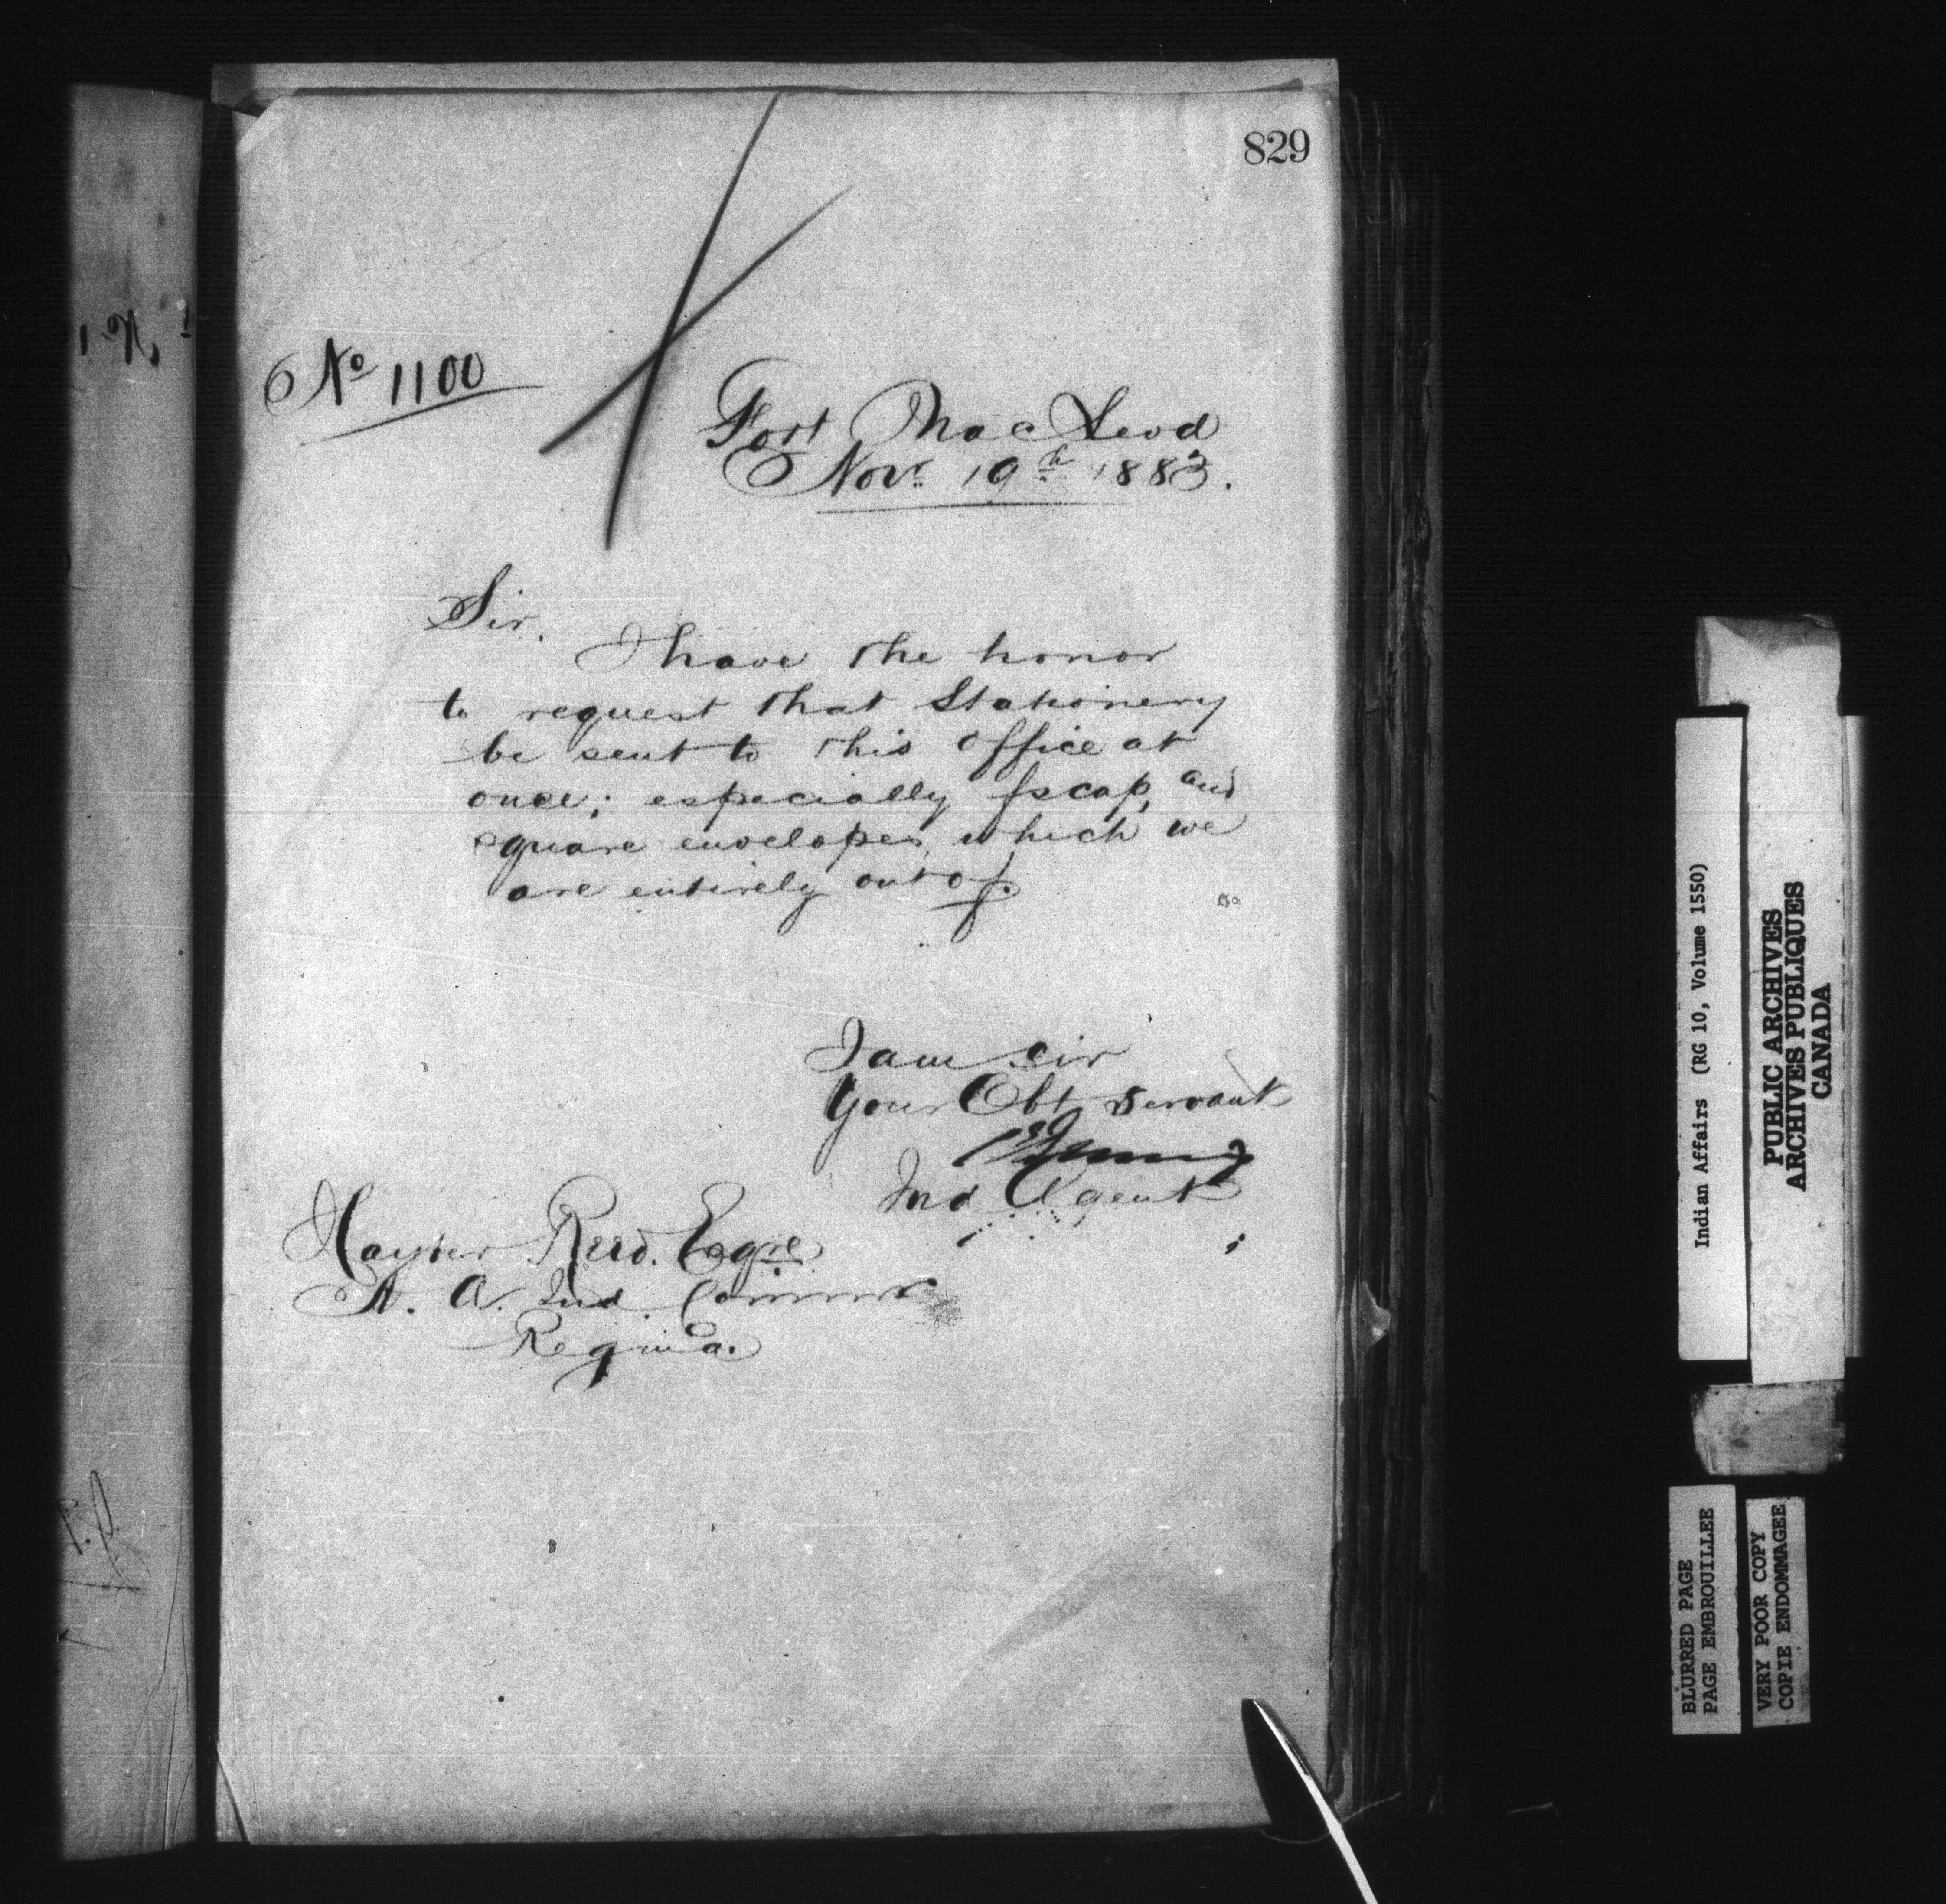 829
No 1100
Fort MacLeod
Novr 19th 1883.
Sir,
I have the honor
to request that Stationery
be sent to this office at
once; especially fscap, and
square envelopes, which we
are entirely out of.
I am sir
Your Obt servant
Ind Agent
Hayter Reed. Esqre
A. A. Ind. Commr
Regina.
Indian Affairs (RG 10, Volume 1550)
PUBLIC ARCHIVES
ARCHIVES PUBLIQUES
CANADA
BLURRED PAGE
PAGE EMBROUILLEE
VERY POOR COPY
COPIE ENDOMMAGEE